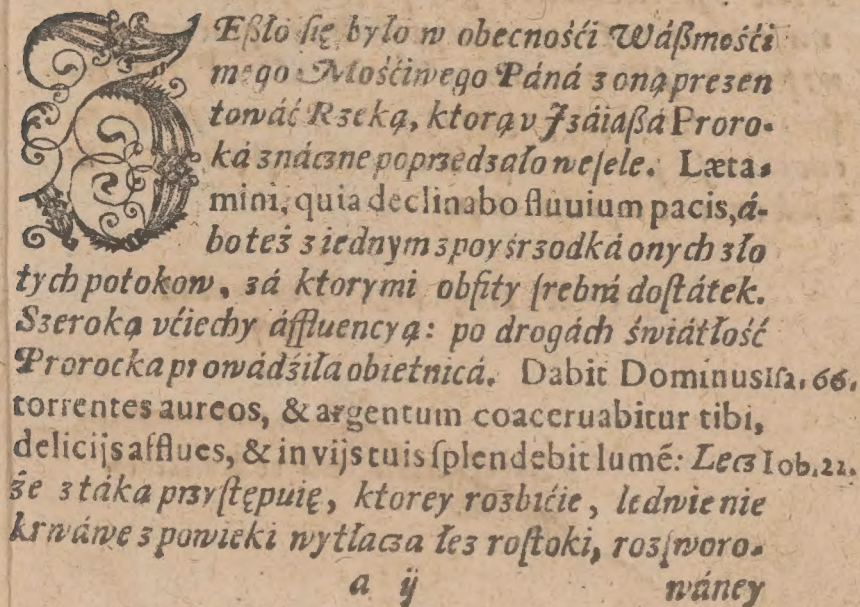 ZEßło się było w obecnośći Wáßmośći
mego Mośćiwego Páná z oną prezen
towáć Rzeką, ktorą v Jzáiaßá Proro-
ká znáczne poprzedzało weſele. Læta-
mini, quia declinabo fluuium pacis, á-
bo też z iednym z poyśrzodká onych zło
tych potokow, zá ktorymi obfity ſrebrá doſtátek.
Szeroką vćiechy áffluencyą: po drogách świátłość
Prorocka prowádźiła obietnicá. Dabit Dominus Iſa. 66.
torrentes aureos, & argentum coaceruabitur tibi,
delicijs afflues, & in vijs tuis ſplendebit lumẽ: Lecz Iob. 22.
że z táka przyſtępuię, ktorey rozbićie, ledwie nie
krwáwe z powieki wytłacza łez roſtoki, rozſworo-
a ij wáney